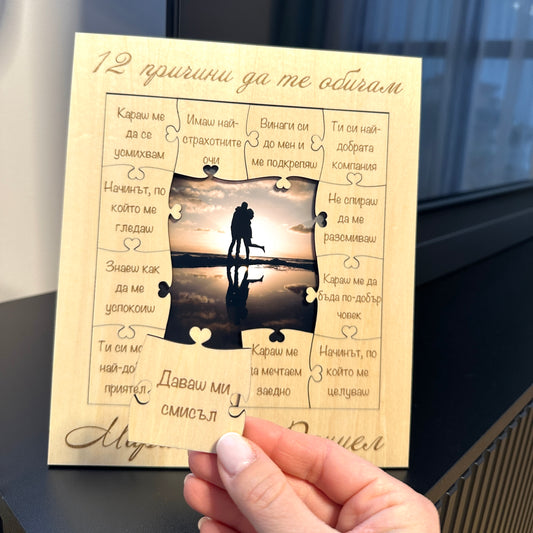 12 причини да те обичам
Караш ме
да се
усмихвам
Имаш най-
страхотните
очи
Винаги си
до мен и
ме подкрепяш
Ти си най-
добрата
компания
Начинът, по
който ме
гледаш
Не спираш
да ме
разсмиваш
Знаеш как
да ме
успокоиш
Караш ме да
бъда по-добър
човек
Ти си
най-до
приятел
Даваш ми
смисъл
Караш ме
да мечтаем
заедно
Начинът, по
който ме
целуваш